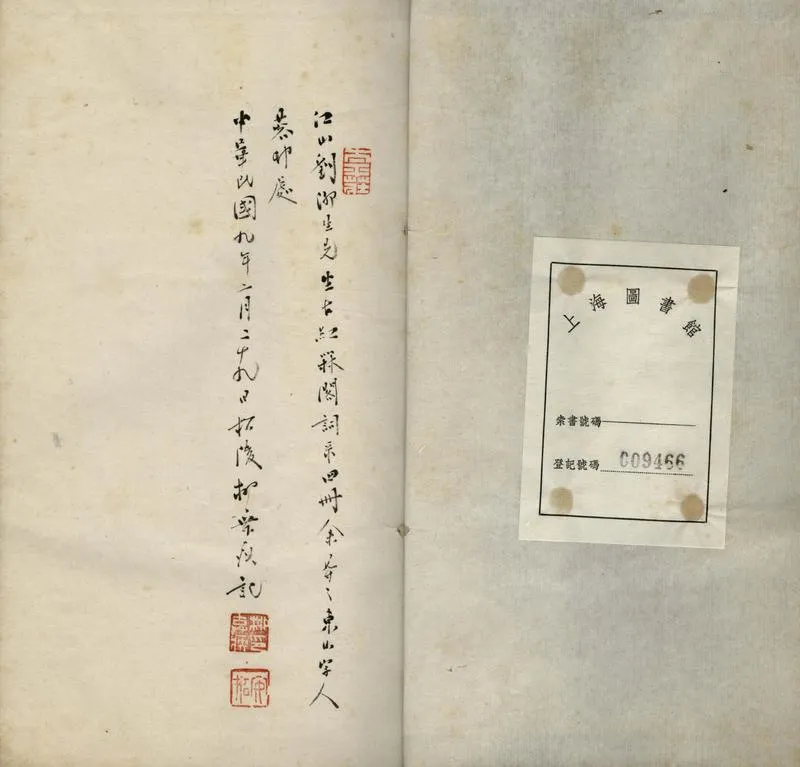 江山劉泖生先生古紅槑閣詞录四冊余㝵之東山學人
處
中華民國九年二月二十九日松陵柳棄疾記
上海圖書館
索書號碼
登記號碼 009466